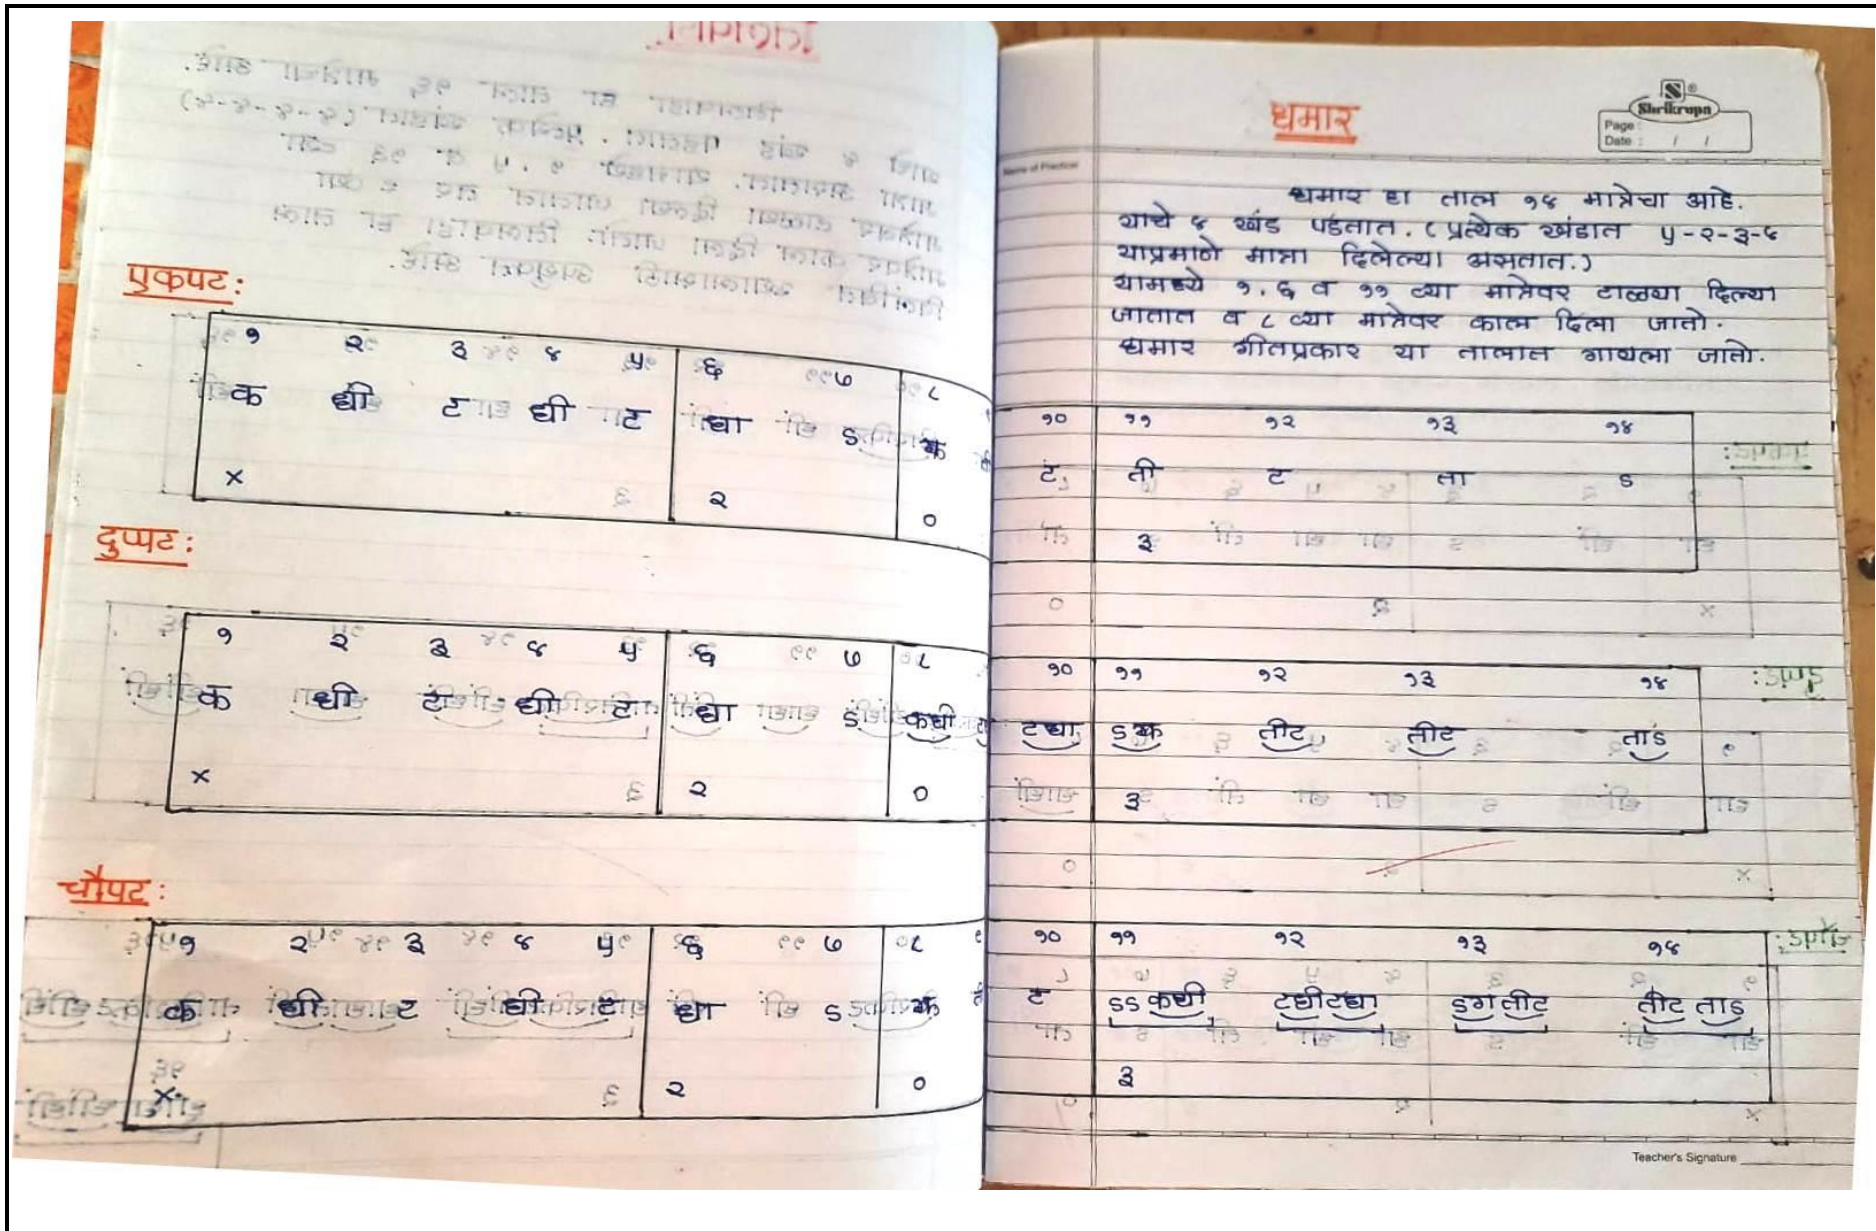 धमार
Shrikrupa
Page :
Date : / /
Name of Practical
धमार हा ताल १४ मात्रेचा आहे.
याचे ४ खंड पडतात. (प्रत्येक खंडात ५-२-३-४
याप्रमाणे मात्रा दिलेल्या असतात.)
यामध्ये १, ६ व ११ व्या मात्रेवर टाळ्या दिल्या
जातात व ८ व्या मात्रेवर काल दिला जातो.
धमार गीतप्रकार या तालात गायला जातो.
एकपट:
१ २ ३ ४ ५ ६ ७ ८ १० ११ १२ १३ १४
क धी ट धी ट धा ऽ क ट ती ट ता ऽ
× २ ० ३
दुप्पट:
१ २ ३ ४ ५ ६ ७ ८ १० ११ १२ १३ १४
क धी ट धी ट धा ऽ कधी टधा ऽक तीट तीट ताऽ
× २ ० ३
चौपट:
१ २ ३ ४ ५ ६ ७ ८ १० ११ १२ १३ १४
क धी ट धी ट धा ऽ क ट ऽऽ कधी टधीटधा ऽग तीट तीट ताऽ
× २ ० ३
Teacher's Signature